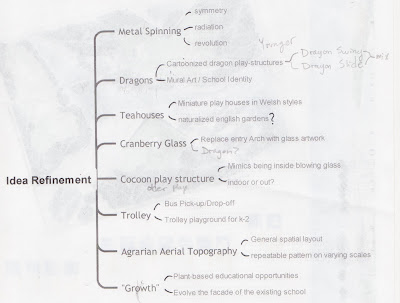 symmetry
Metal Spinning
radiation
revolution
Younger
Dragon Swing
Cartoonized dragon play-structures
Dragon Slide
Dragons
Mural Art / School Identity
Miniature play houses in Welsh styles
Teahouses
naturalized english gardens?
Replace entry Arch with glass artwork
Cranberry Glass
Dragon?
Mimics being inside blowing glass
Idea Refinement
Cocoon play structure
older play
indoor or out?
Bus Pick-up/Drop-off
Trolley
Trolley playground for k-2
General spatial layout
Agrarian Aerial Topography
repeatable pattern on varying scales
Plant-based educational opportunities
"Growth"
Evolve the facade of the existing school